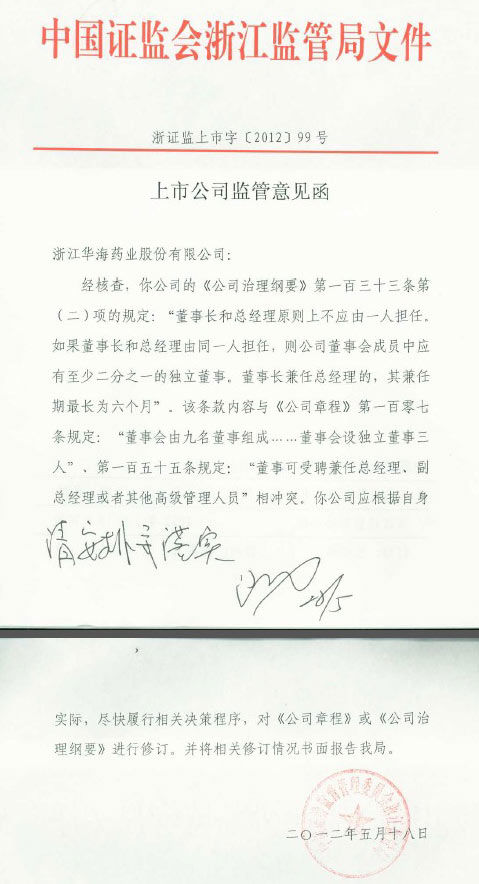 中国证监会浙江监管局文件
浙证监上市字〔2012〕99号
上市公司监管意见函
浙江华海药业股份有限公司：
经核查，你公司的《公司治理纲要》第一百三十三条第
（二）项的规定：“董事长和总经理原则上不应由一人担任。
如果董事长和总经理由同一人担任，则公司董事会成员中应
有至少二分之一的独立董事。董事长兼任总经理的，其兼任
期最长为六个月”。该条款内容与《公司章程》第一百零七
条规定：“董事会由九名董事组成……董事会设独立董事三
人”、第一百五十五条规定：“董事可受聘兼任总经理、副
总经理或者其他高级管理人员”相冲突。你公司应根据自身
请安排 落实
28/5
实际，尽快履行相关决策程序，对《公司章程》或《公司治
理纲要》进行修订。并将相关修订情况书面报告我局。
二〇一二年五月十八日